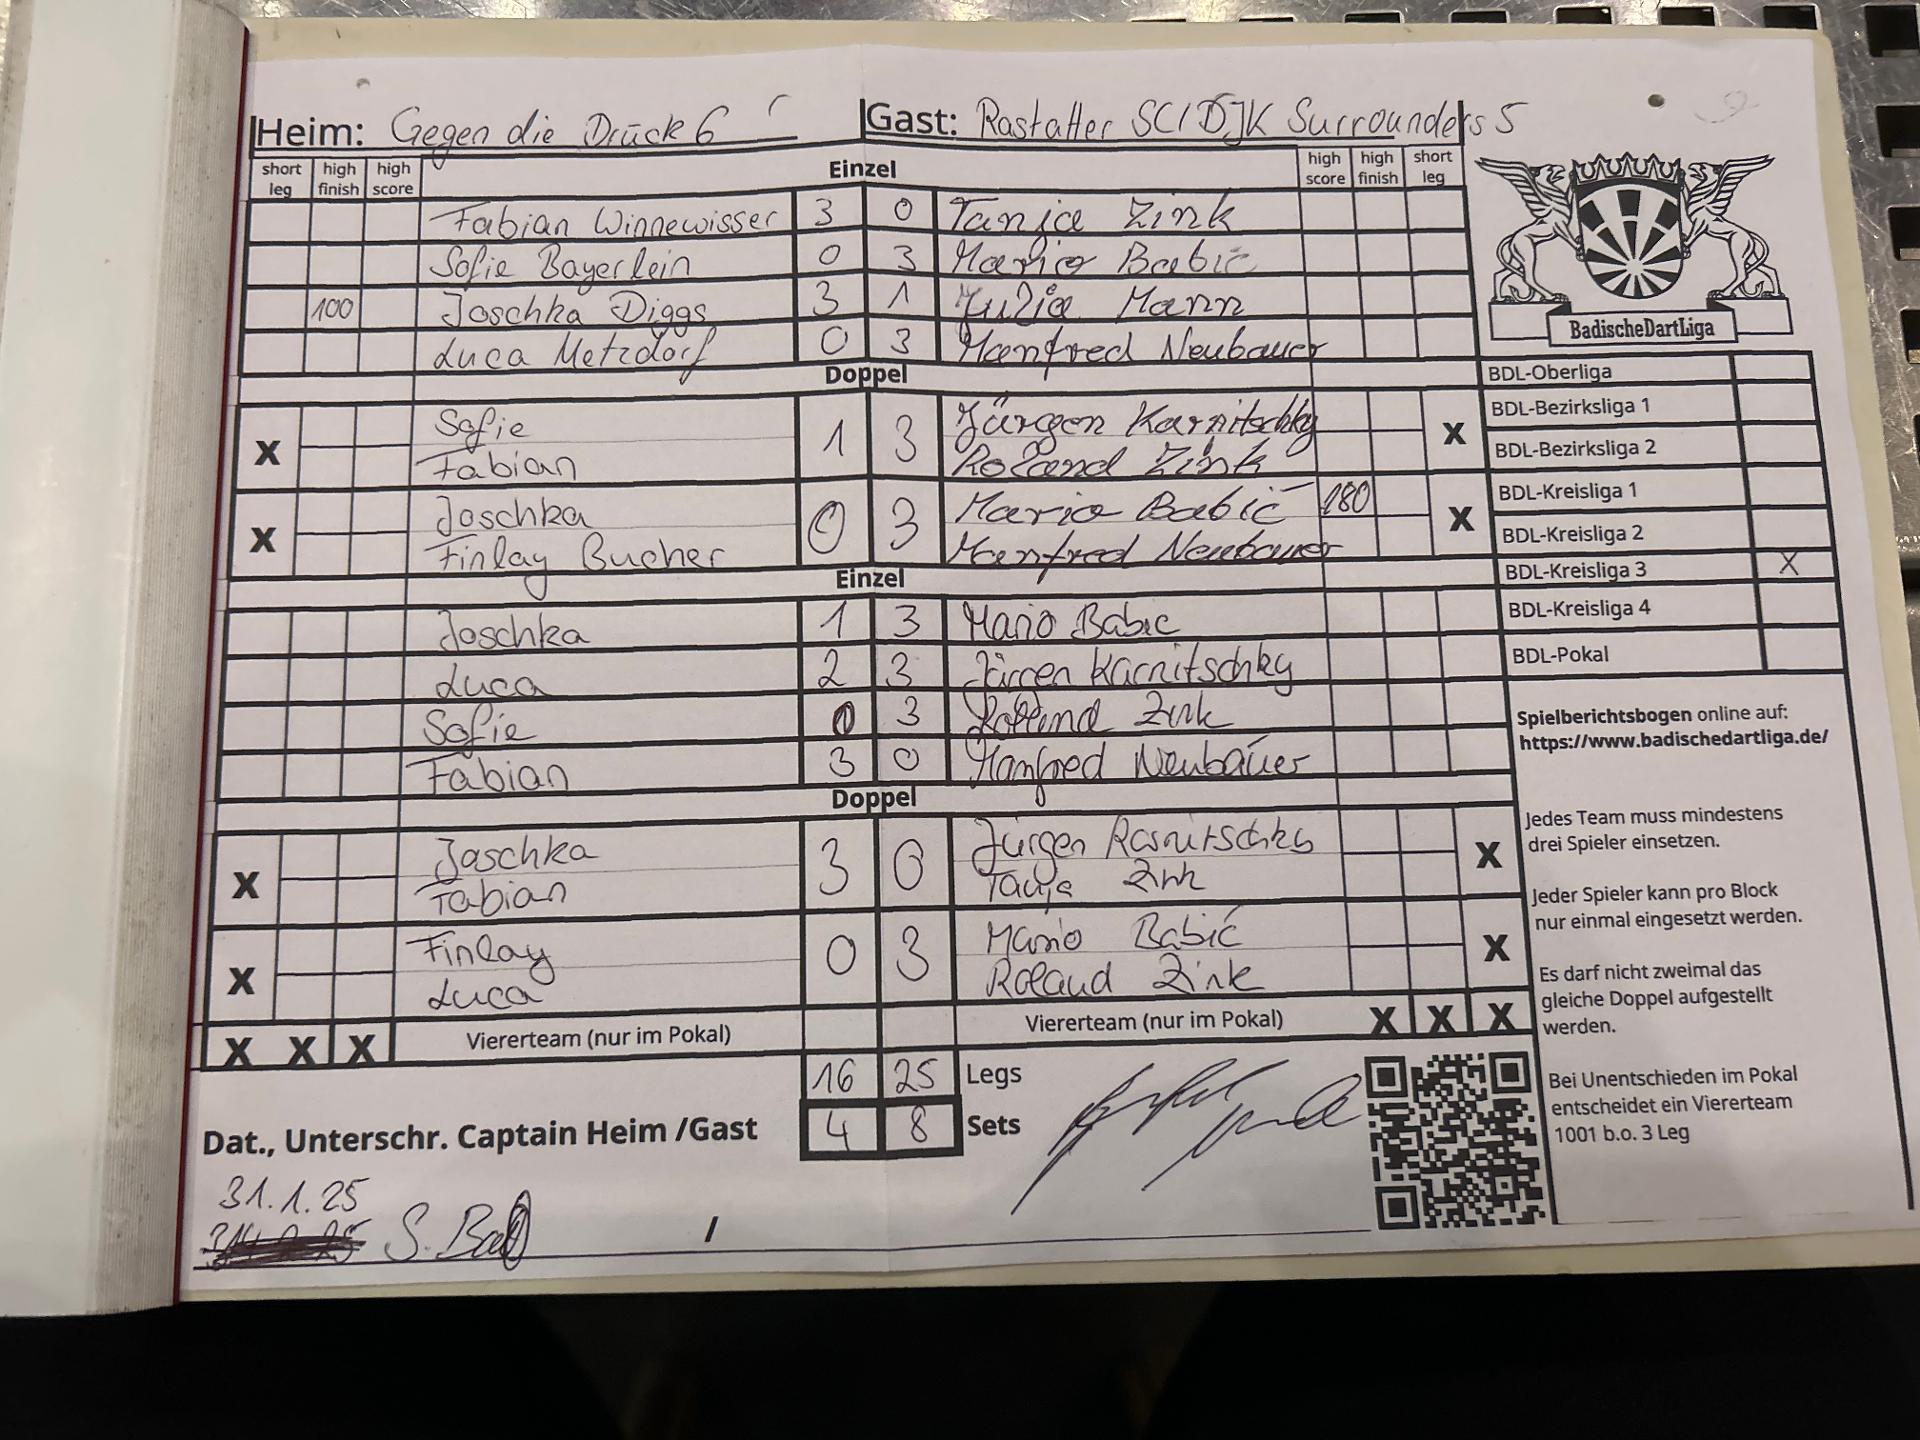 Heim: Gegen die Drück 6 Gast: Rastatter SC/DJK Surrounders 5
short leg high finish high score Einzel high score high finish short leg
Fabian Winnewisser 3 0 Tanja Zink
Sofie Bayerlein 0 3 Mario Babić
100 Joschka Diggs 3 1 Julia Mann
Luca Metzdorf 0 3 Manfred Neubauer
Doppel
X Sofie 1 3 Jürgen Karnitschky X
Fabian Roland Zink
X Joschka 0 3 Mario Babić 180 X
Finlay Bucher Manfred Neubauer
Einzel
Joschka 1 3 Mario Babic
Luca 2 3 Jürgen Karnitschky
Sofie 0 3 Rolland Zink
Fabian 3 0 Manfred Neubauer
Doppel
X Joschka 3 0 Jürgen Karnitschky X
Fabian Tanja Zink
X Finlay 0 3 Mario Babić X
Luca Roland Zink
X X X Viererteam (nur im Pokal) Viererteam (nur im Pokal) X X X
16 25 Legs
4 8 Sets
Dat., Unterschr. Captain Heim /Gast
31.1.25
/
BadischeDartLiga
BDL-Oberliga
BDL-Bezirksliga 1
BDL-Bezirksliga 2
BDL-Kreisliga 1
BDL-Kreisliga 2
BDL-Kreisliga 3 X
BDL-Kreisliga 4
BDL-Pokal
Spielberichtsbogen online auf:
https://www.badischedartliga.de/
Jedes Team muss mindestens
drei Spieler einsetzen.
Jeder Spieler kann pro Block
nur einmal eingesetzt werden.
Es darf nicht zweimal das
gleiche Doppel aufgestellt
werden.
Bei Unentschieden im Pokal
entscheidet ein Viererteam
1001 b.o. 3 Leg